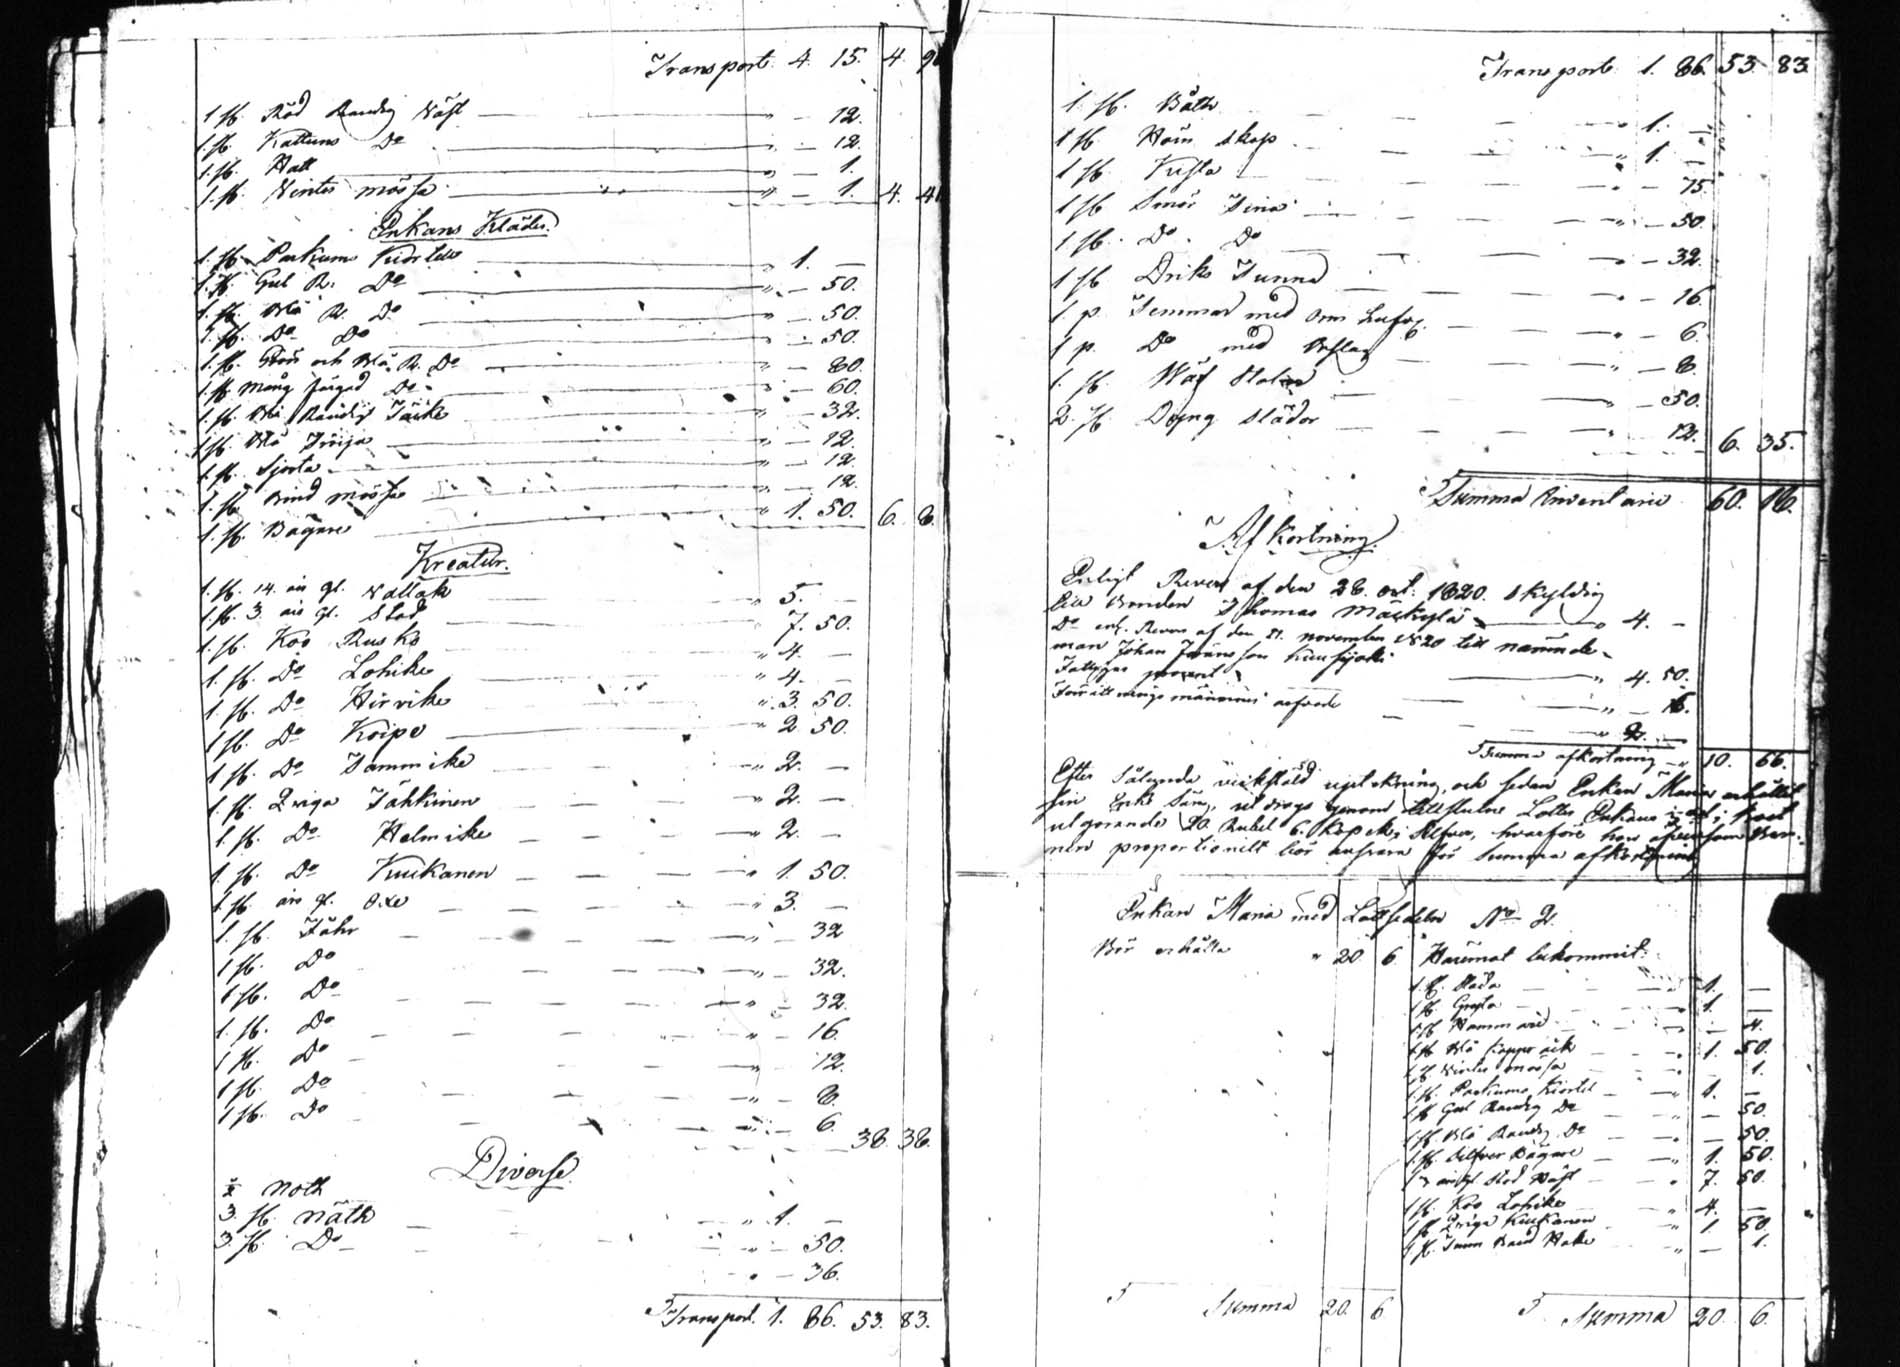 Transport. 4. 15. 4. 9
1 st. Röd Randig Väst " — 12.
1. st. Kattuns Do " — 12.
1. st. Hatt " — 1.
1. st. Vinter mössa " — 1. 4. 4
Enkans Kläder.
1. st. Parkums Kiortel " 1. —
1. st. Gul R. Do " — 50.
1. st. Blå R. Do " — 50.
1. st. Do Do " — 50.
1. st. Grön och Blå R. Do " — 80.
1. st. Mång färgad Do " — 60.
1. st. Blå Randigt Täcke " — 32.
1 st. Blå Tröija " — 12.
1. st. Sjorta " — 12.
1. st. Bind mössa " — 12.
1. st. Bägare " 1. 50. 6. 8.
Kreatur.
1. st. 14. års gl. Vallak " 5. —
1. st. 3. års gl. Stod 7. 50.
1. st. Koo Rusko " 4. —
1. st. Do Lohike " 4. —
1. st. Do Hirvike " 3. 50.
1 st. Do Koipo " 2. 50.
1 st. Do Tammike " 2. —
1. st. Qviga Tähkinen " 2. —
1. st. Do Helmike " 2. —
1. st. Do Kuukanen " 1. 50.
1. st. års gl. Oxe " 3. —
1. st. Fåhr " — 32
1 st. Do " — 32.
1 st. Do " — 32.
1. st. Do " — 16.
1 st. Do " — 12.
1 st. Do " — 8.
1 st. Do " — 6. 38. 38.
Diverse.
Noth
3. st. Näth " 1. —
3. st. Do " — 50.
" — 36.
Transport. 1. 86. 53. 83.
Transport. 1. 86. 53. 83.
1. st. Båth " 1. —
1 st. Skåp " 1. —
1 st. Kista " — 75
1 st. Smör Tina " — 50.
1 st. Do Do " — 32.
1 st. Driks Tunna " — 16.
1. p. Temmar med " — 6.
1 p. Do med Beslag " — 8.
1. st. Väf " — 50.
2. st. Dyng Slädor " — 12. 6. 35.
Summa Inventarii 60. 18.
Afkortning.
Enligt Revers af den 28. Oct. 1820. skyldig
till Bonden Thomas Mäkylä " 4. —
Do enl. Revers af den 21. November 1820 till nämnde-
man Johan Jöransson Kuusijoki " 4. 50.
Fattiges procent " — 16.
Förrättnings männernes arfvode " 2. —
Summa afkortning " 10. 66.
Efter sålunda värkstäld uträkning, och sedan Enkan Maria erhållit
sin Enke Säng, utdrogs genom tillslutne Lotter Enkans
utgörande 20. Rubel 6. Kopek Silfver, hvarföre hon äfven som Bar-
nen proportionelt bör ansvara för Summa afkortning
Enkan Maria med Lottsedeln No 2.
Bör erhålla " 20. 6. Häremot bekommit.
1. st. Släda " 1. —
1 st. Gryta " 1. —
1 st. Hammare " — 4.
1 st. Blå " 1. 50.
1 st. Vinter mössa " — 1.
1. st. Parkums Kiortel " 1. —
1 st. Gul Randig Do " — 50.
1 st. Blå Randig Do " — 50.
1 st. Silfver Bägare " 1. 50.
3 års gl. Stod " 7. 50.
1 st. Koo Lohike " 4. —
1 st. Qviga Kuukanen " 1. 50.
1 st. " — 1.
Summa 20. 6
Summa 20. 6.